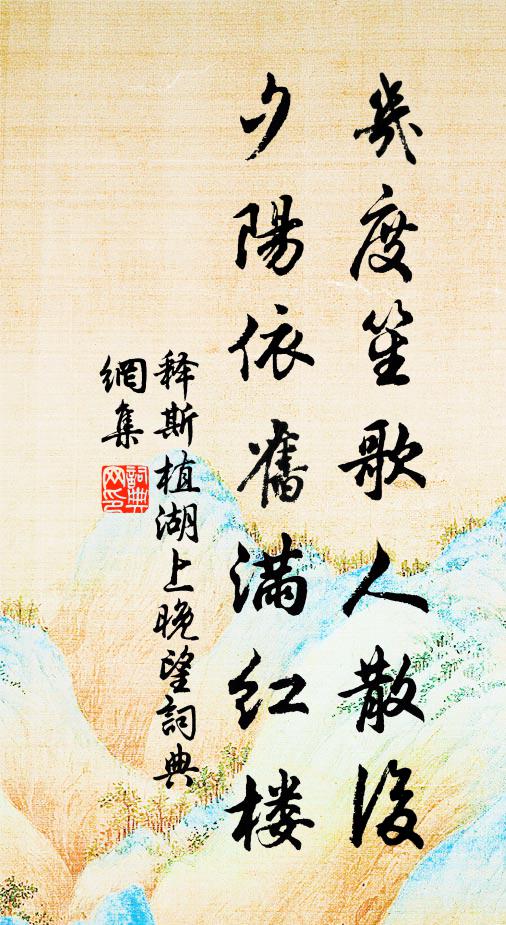 幾度笙歌人散後
夕陽依舊滿红楼
释斯植湖上晚望詞典
網集
詞典
网印